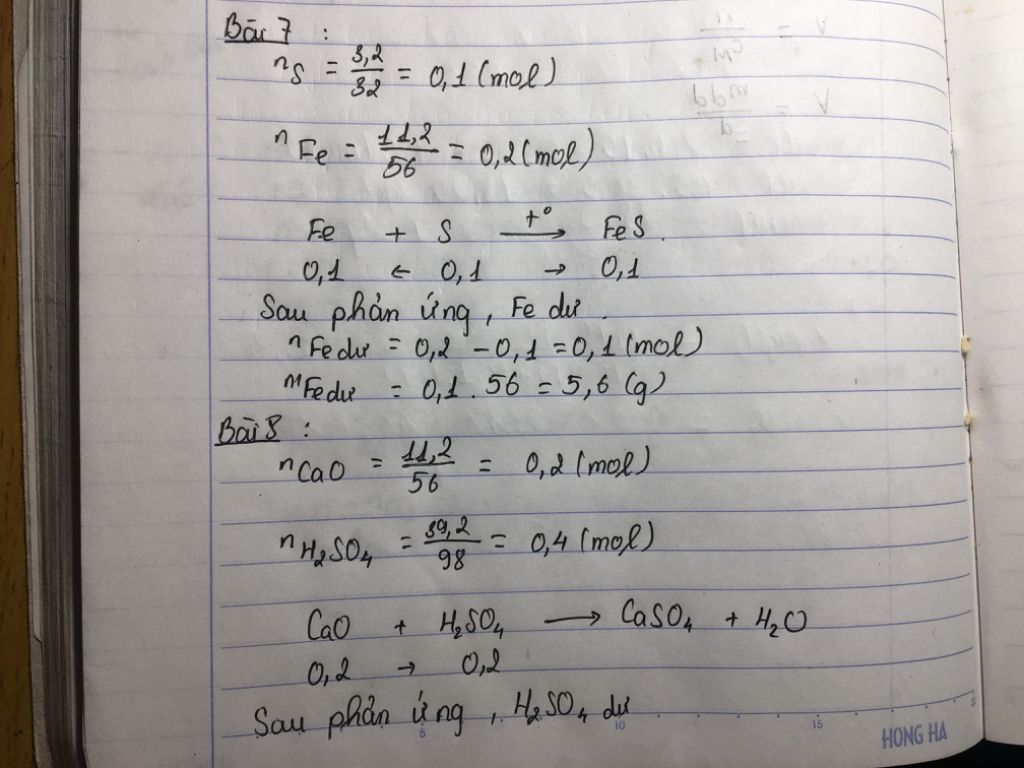 Bài 7 :
nS = 3,2/32 = 0,1 (mol)
nFe = 11,2/56 = 0,2 (mol)
Fe + S —t°→ FeS.
0,1 ← 0,1 → 0,1
Sau phản ứng, Fe dư.
nFe dư = 0,2 - 0,1 = 0,1 (mol)
mFe dư = 0,1 . 56 = 5,6 (g)
Bài 8 :
nCaO = 11,2/56 = 0,2 (mol)
nH₂SO₄ = 39,2/98 = 0,4 (mol)
CaO + H₂SO₄ ⟶ CaSO₄ + H₂O
0,2 → 0,2
Sau phản ứng, H₂SO₄ dư
5 10 15
HONG HA